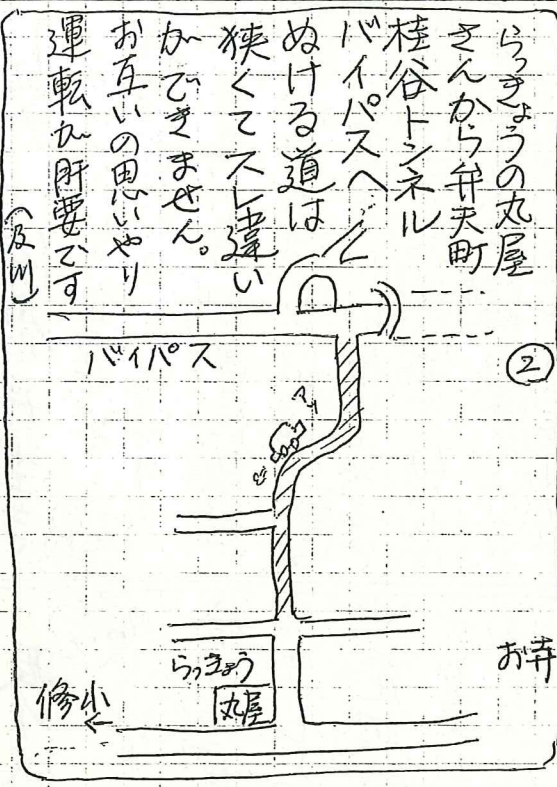 らっきょうの丸屋
さんから弁天町
桂谷トンネル
バイパスへ
ぬける道は
狭くてスレ違い
ができません。
お互いの思いやり
運転が肝要です
(及川)
バイパス
②
らっきょう
丸屋
修小
←
お寺